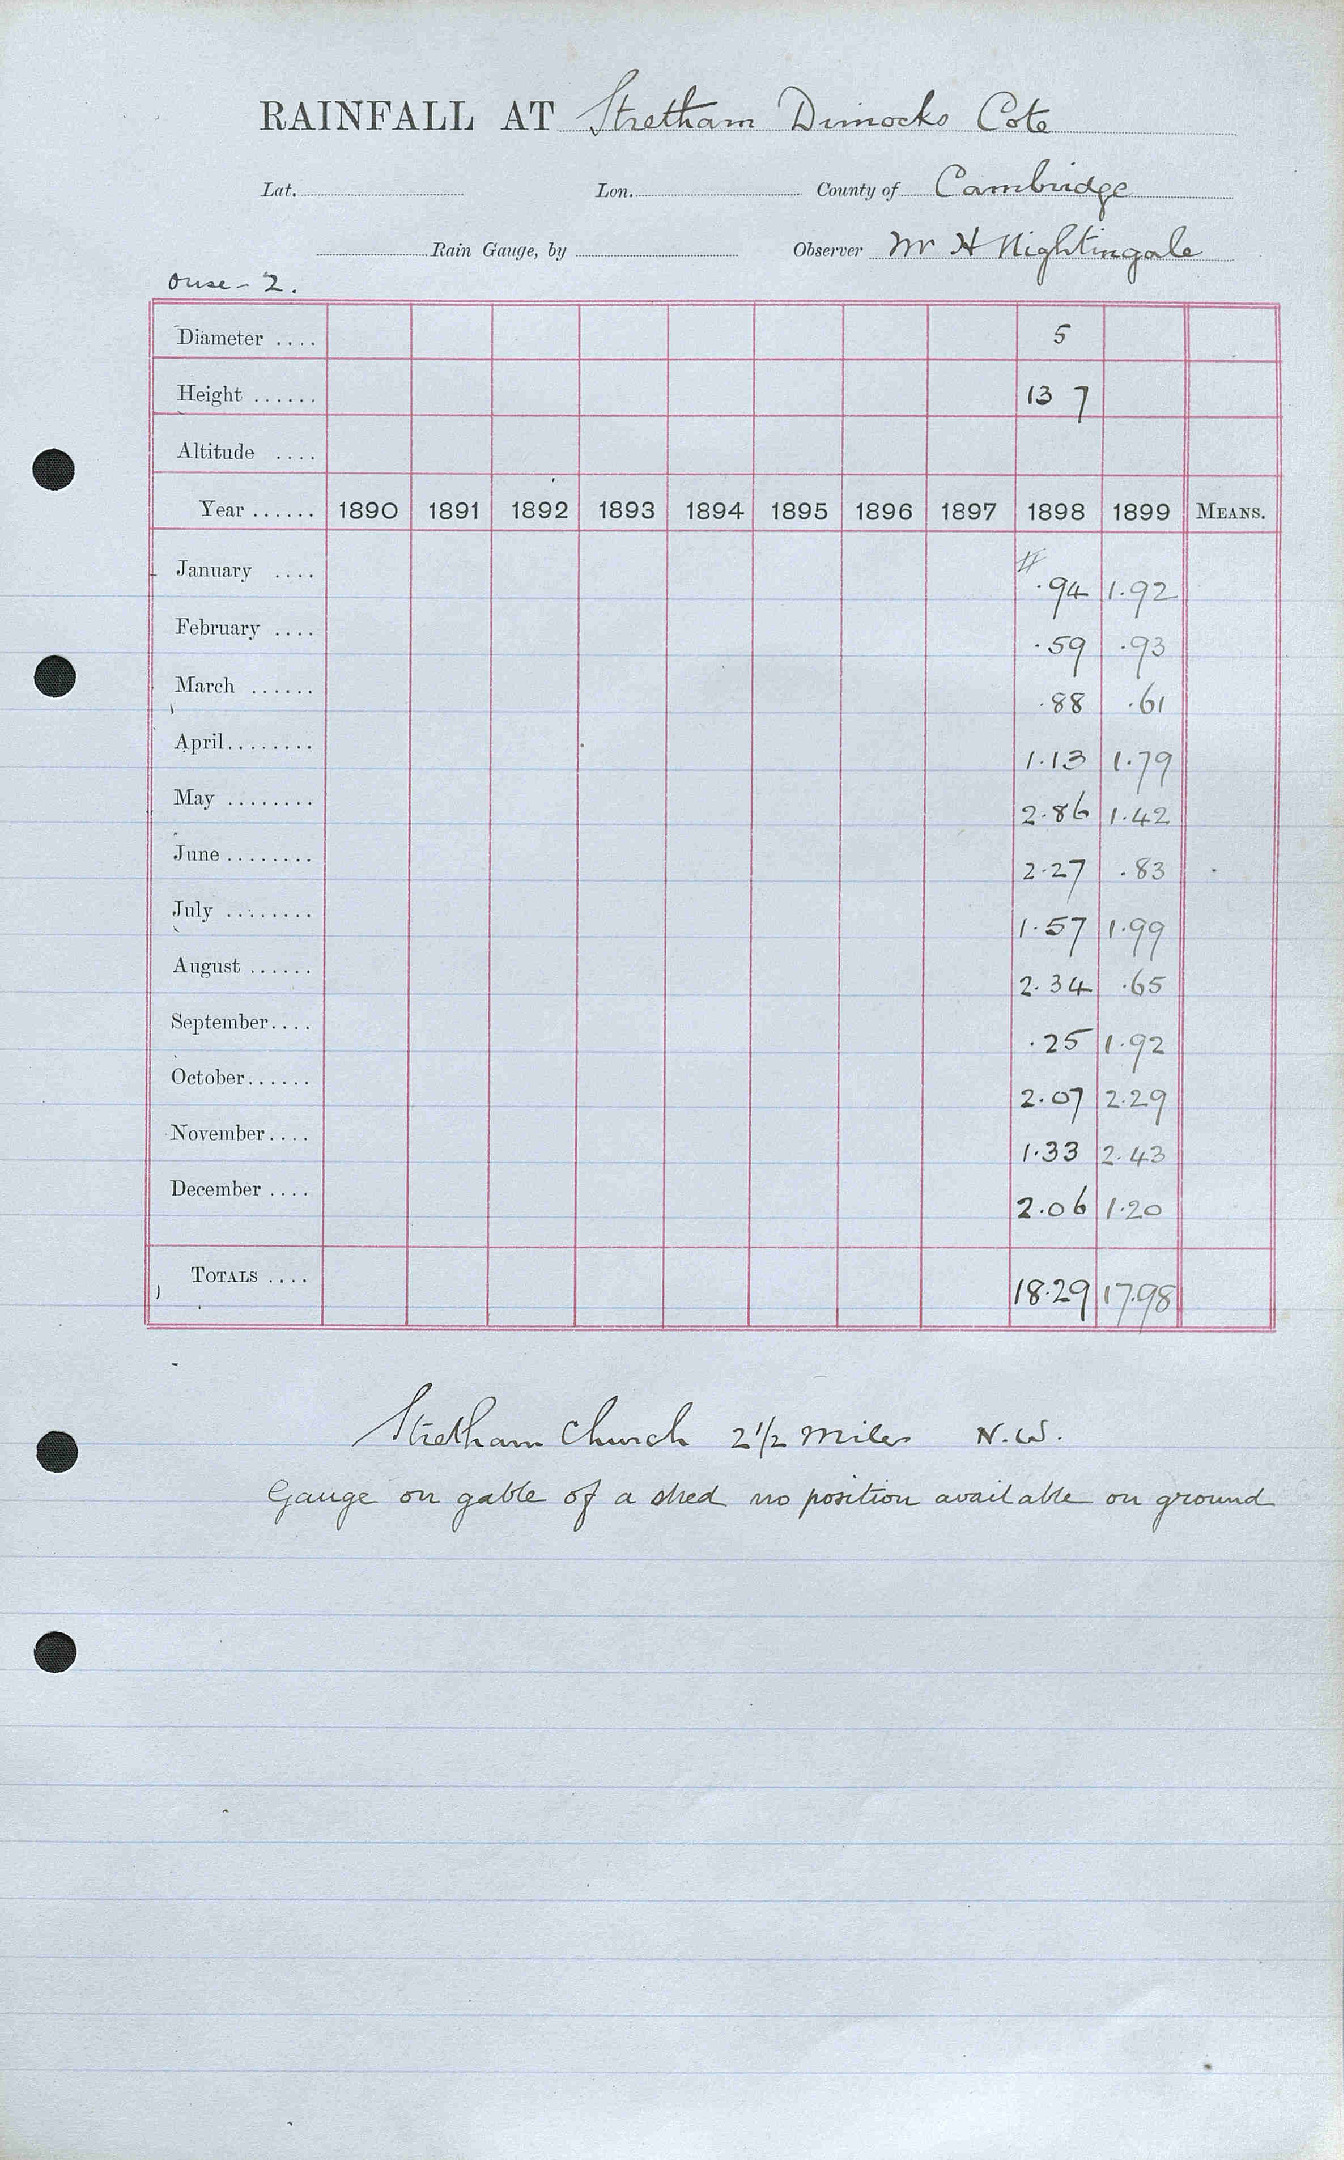 RAINFALL AT Stretham Dimocks Cote
Lat. Lon. County of Cambridge
Rain Gauge, by Observer Mr H Nightingale
Ouse - 2.
Diameter .... 5
Height ...... 13 7
Altitude ....
Year ...... 1890 1891 1892 1893 1894 1895 1896 1897 1898 1899 MEANS.
#
January .... .94 1.92
February .... .59 .93
March ...... .88 .61
April........ 1.13 1.79
May ........ 2.86 1.42
June ........ 2.27 .83
July ........ 1.57 1.99
August ...... 2.34 .65
September.... .25 1.92
October...... 2.07 2.29
November.... 1.33 2.43
December .... 2.06 1.20
TOTALS .... 18.29 17.98
Stretham Church 2 1/2 miles N.W.
Gauge on gable of a shed no position available on ground